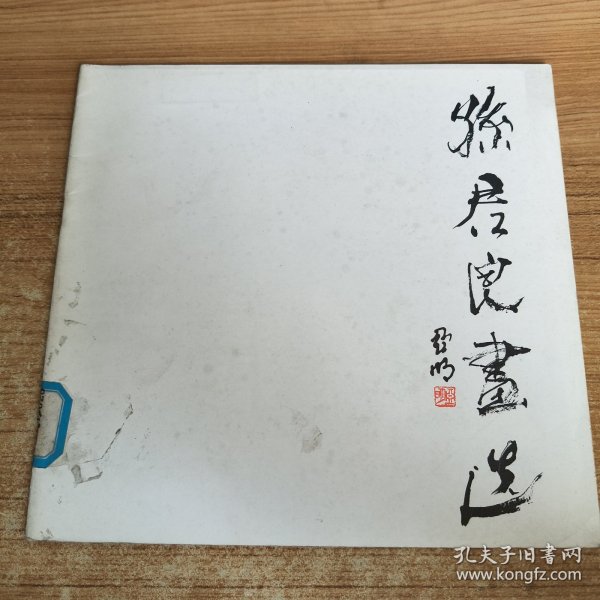 孙君良畫选
亚明
孔夫子旧书网
www.kongfz.com